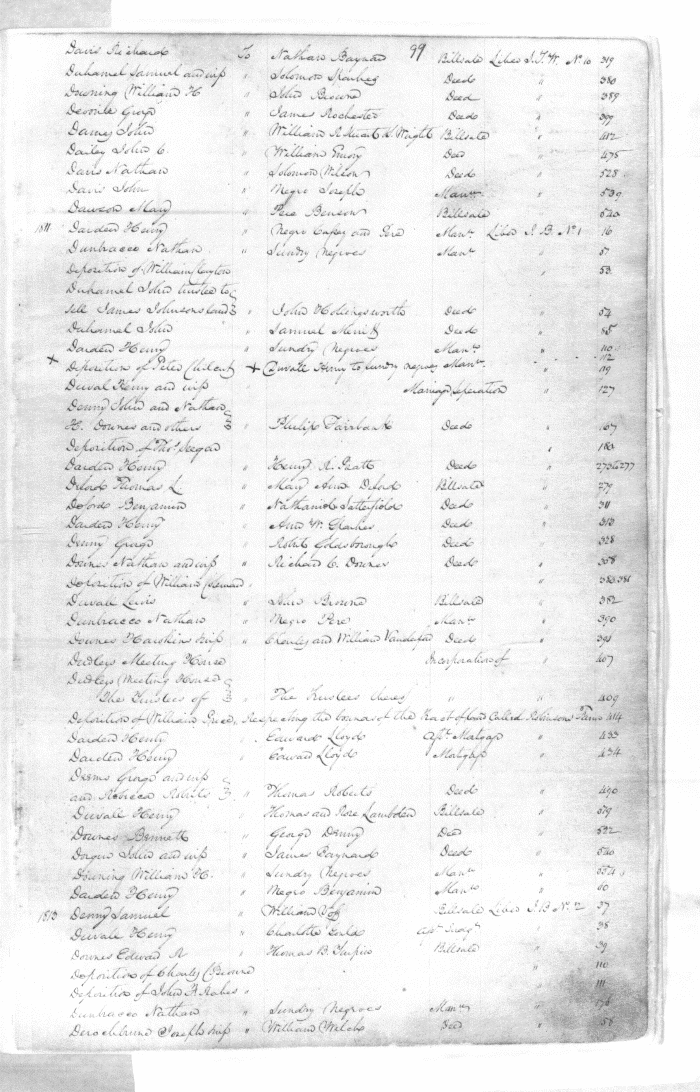 99
Davis Richard To Nathan Baynard Billsale Liber J.T.W. No 10 319
Duhamel Samuel and wife " Solomon Starkey Deed " 380
Downing William H " John Brown Deed " 389
Devonile George " James Rochester Deed " 397
Damey John " William R Stuart & Wright Billsale " 412
Dailey John C " William Emory Deed " 475
Davis Nathan " Solomon Wilson Deed " 528
Davis John " Negro Joseph Manu. " 539
Dawson Mary " Pere Benson Billsale 540
1811 Darden Henry " Negro Cuffey and Pere Manu. Liber J.B. No 1 16
Dunbracco Nathan " Sundry Negroes Manu. " 51
Deposition of William Clayton " 53
Duhamel John trustee to
sell James Johnsons land " John Hollingsworth Deed " 54
Duhamel John " Samuel Merrit Deed " 85
Darden Henry " Sundry Negroes Manu. " 110
+ Deposition of Peter Chilcutt + Duvale Henry to sundry negroes Manu. " 112 119
Duval Henry and wife " Marriage Seperation " 127
Denny John and Nathan
H. Downes and others " Philip Fairbank Deed " 167
Deposition of Thos. Seegar " 180
Darden Henry " Henry K. Pratt Deed " 273 & 277
Deford Thomas L " Mary Ann Deford Billsale " 279
Deford Benjamin " Nathaniel Satterfield Deed " 311
Darden Henry " Ann W. Clarkes Deed " 313
Denny George " Robert Goldsborough Deed " 328
Downes Nathan and wife " Richard C. Downes Deed " 358
Deposition of William Coleman " 383 381
Duvale Lewis " John Browne Billsale " 382
Dunbracco Nathan " Negro Pere Manu. " 390
Downes Hawkins wife " Charles and William Vandeford Deed " 391
Dudleys Meeting House Incorporation of " 407
Dudleys Meeting House
The Trustees of " The Trustees thereof " " 409
Deposition of William Greed, respecting the bounds of the Tract of land Called Robinsons Farm 414
Darden Henry " Edward Lloyd Asst. Mortgage " 433
Darden Henry " Edward Lloyd Mortgage " 434
Deems George and wife
and Rebecca Roberts " Thomas Roberts Deed " 490
Duvale Henry " Thomas and Rose Lambden Billsale " 519
Downes Bennett " George Denny Deed " 532
Dorgin John and wife " James Baynard Deed " 540
Downing William H. " Sundry Negroes Manu. " 554
Darden Henry " Negro Benjamin Manu. " 60
1813 Denny Samuel " William Billsale Liber J.B No. 2 37
Duvale Henry " Charlotte Gould " 38
Downes Edward R " Thomas B. Turpin Billsale " 39
Deposition of Charles C Browne " 110
Deposition of John H. Stakes " " 111
Dunbracco Nathan " Sundry Negroes Manu. "
Derochbrune Joseph wife " William Welch Deed "